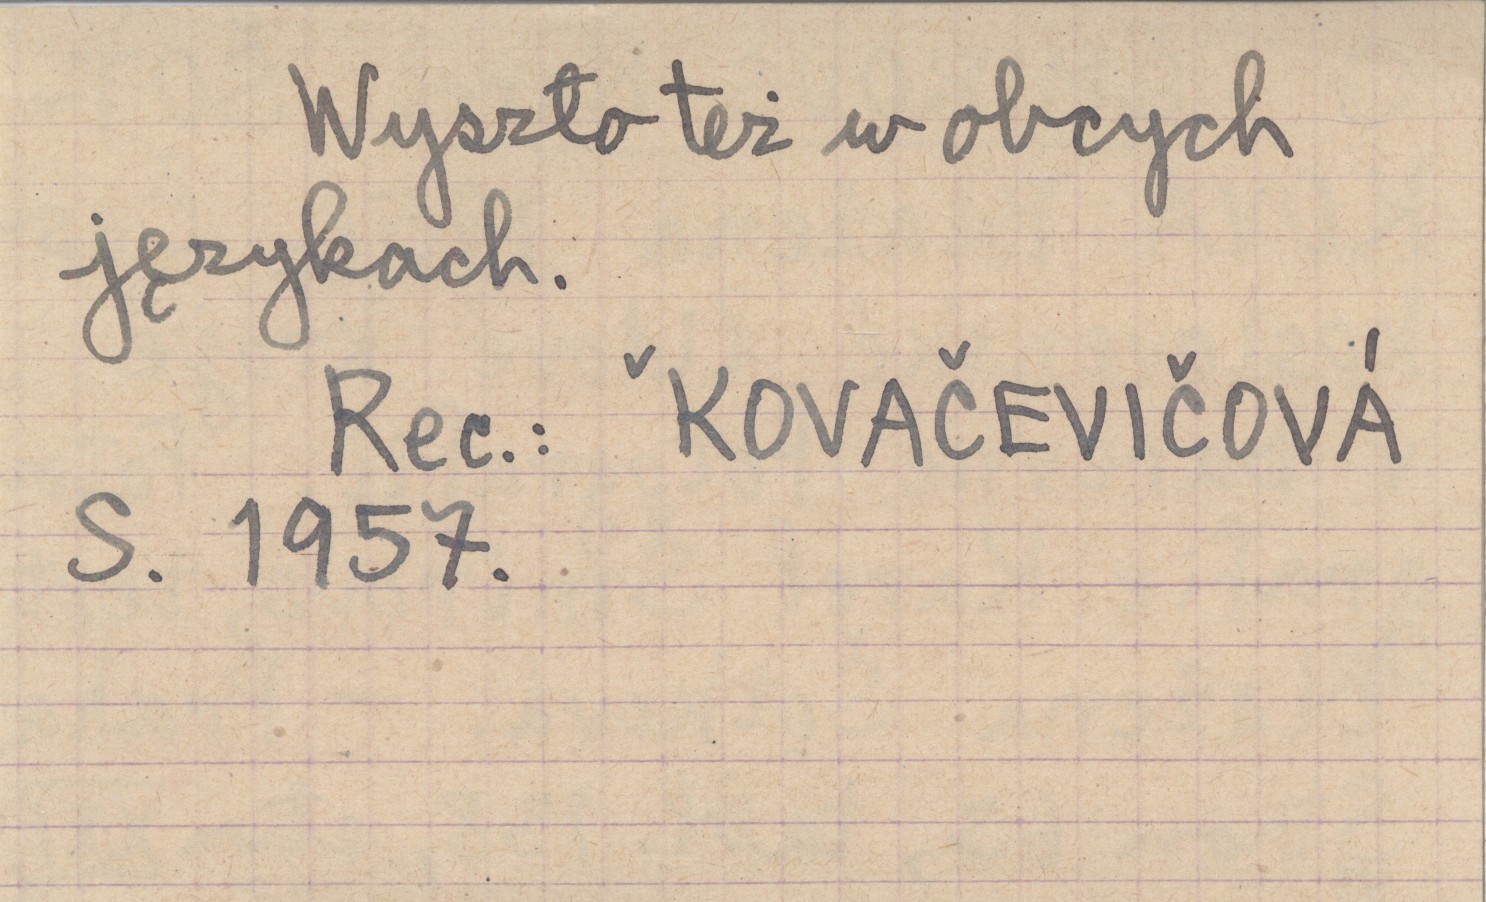 Wyszło też w obcych
językach.
Rec.: ˇKOVAČEVIČOVÁ
S. 1957.